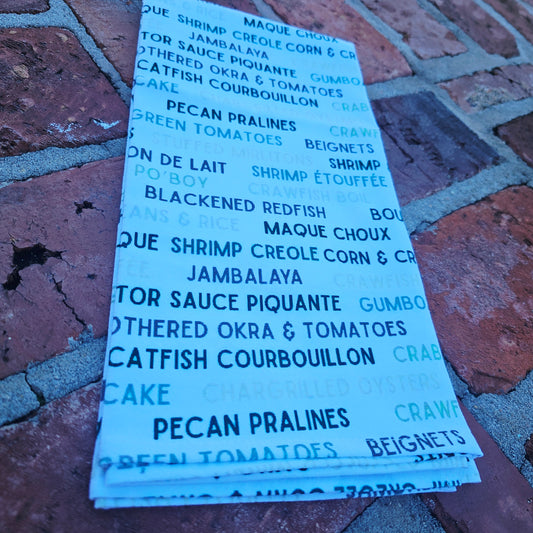 MAQUE CHOUX
SHRIMP CREOLE CORN & CR
JAMBALAYA
TOR SAUCE PIQUANTE GUMBO
OTHERED OKRA & TOMATOES
CATFISH COURBOUILLON CRAB
CAKE
PECAN PRALINES CRAWF
GREEN TOMATOES BEIGNETS
STUFFED MIRLITONS SHRIMP
ON DE LAIT SHRIMP ÉTOUFFÉE
PO'BOY CRAWFISH BOIL
BLACKENED REDFISH BOU
ANS & RICE MAQUE CHOUX
QUE SHRIMP CREOLE CORN & CR
ÉE JAMBALAYA CRAWFISH
TOR SAUCE PIQUANTE GUMBO
OTHERED OKRA & TOMATOES
CATFISH COURBOUILLON CRAB
CAKE CHARGRILLED OYSTERS
PECAN PRALINES CRAWF
GREEN TOMATOES BEIGNETS